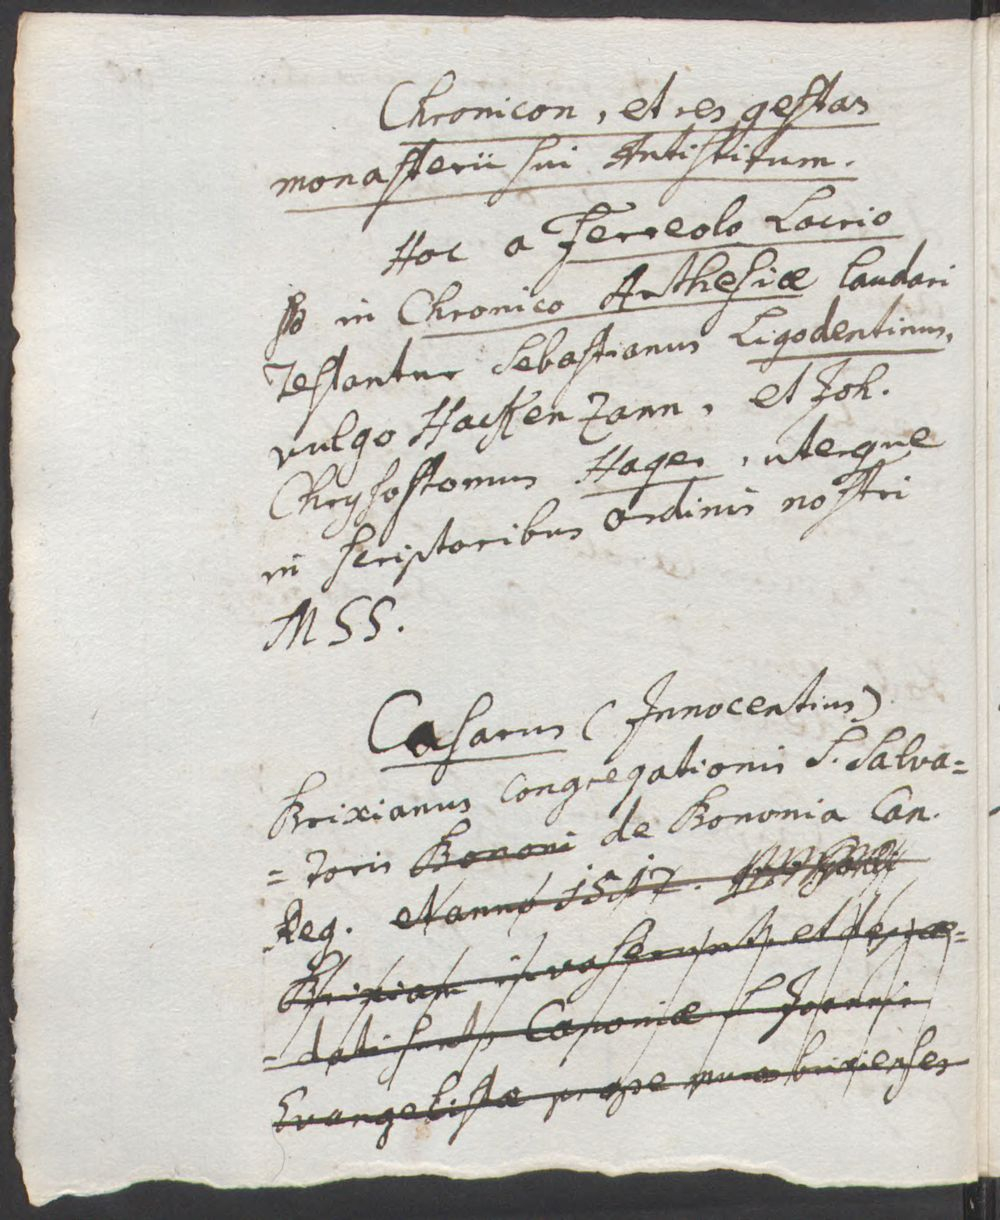 Chronicon, et res gestas
monasterii sui Antistitum.
Hoc a Ferreolo Locrio
in Chronico Arthesiæ laudari
testantur Sebastianus Ligodentinus,
vulgo Hackenzann, et Joh.
Chrysostomus Hager, uterque
in scriptoribus ordinis nostri
MSS.
Casarus (Innocentius)
Brixianus congregationis S. Salva=
=toris Bononi de Bononia Can.
Reg. anno 1517.
Brixiam invaserunt, et depræ=
=dati sunt, Canoniæ S. Joannis
Evangelistæ prope muros brixienses